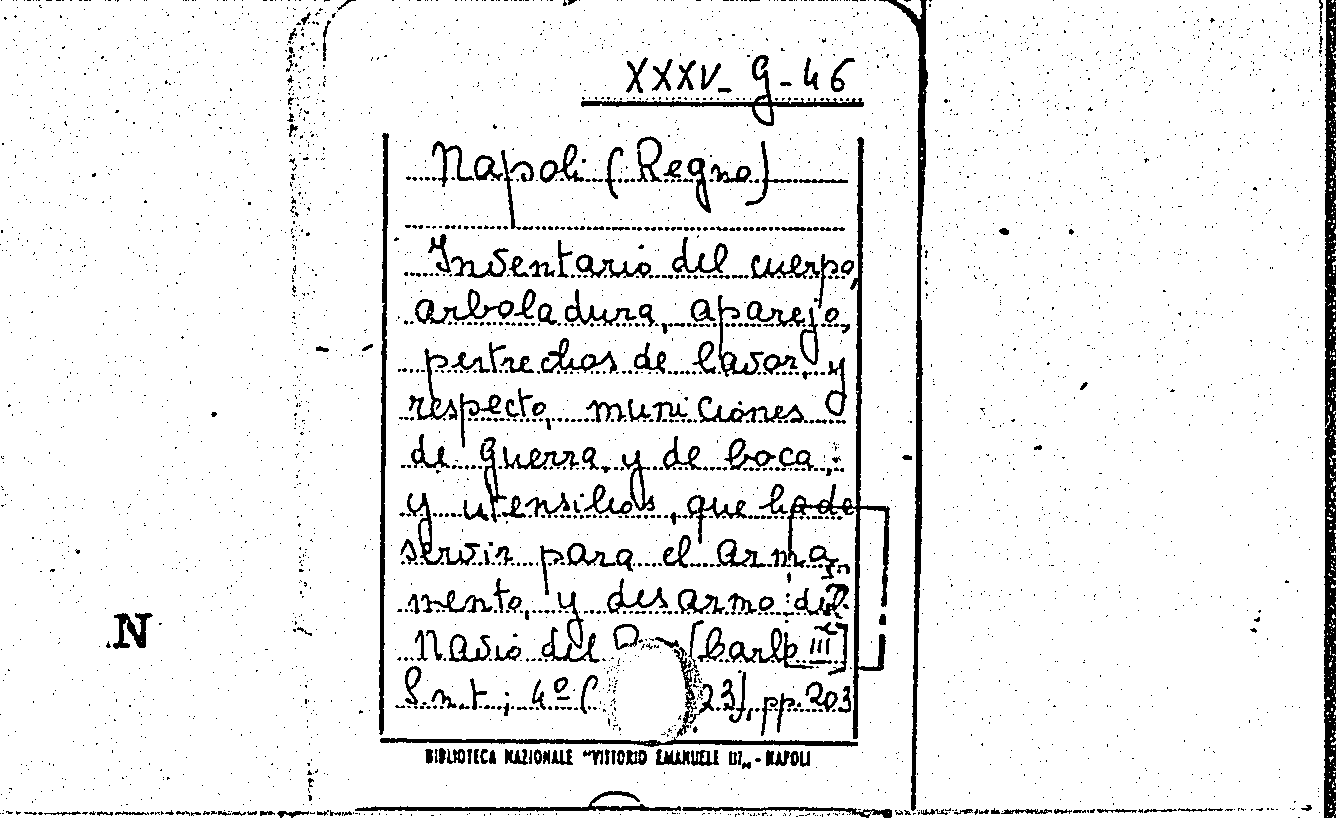 XXXV-G-46
Napoli (Regno)
Inventario del cuerpo,
arboladura, aparejo,
pertrechos de lavor, y
respecto, municiones
de guerra, y de boca;
y utensilios, que ha de
servir para el arma
mento, y desarmo del
N
Navio del [Carlo III]
S.n.t.; 4º ( 23), pp. 203
BIBLIOTECA NAZIONALE "VITTORIO EMANUELE III" - NAPOLI